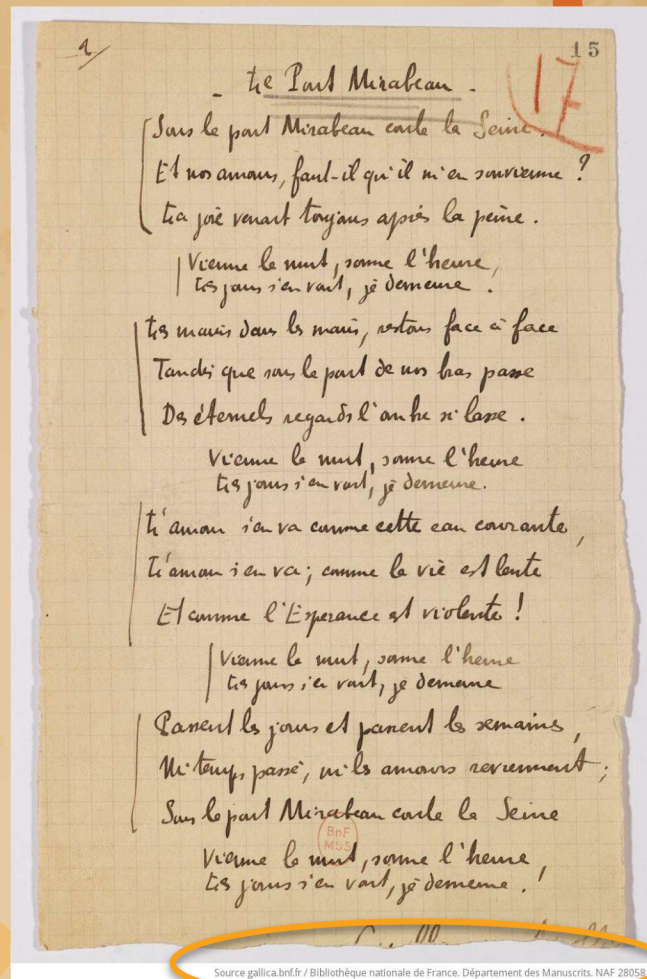 2/
15
17
- Le Pont Mirabeau -
Sous le pont Mirabeau coule la Seine.
Et nos amours, faut-il qu'il m'en souvienne ?
La joie venait toujours après la peine.
Vienne la nuit, sonne l'heure,
Les jours s'en vont, je demeure.
Les mains dans les mains, restons face à face
Tandis que sous le pont de nos bras passe
Des éternels regards l'onde si lasse.
Vienne la nuit, sonne l'heure
Les jours s'en vont, je demeure.
L'amour s'en va comme cette eau courante,
L'amour s'en va ; comme la vie est lente
Et comme l'Espérance est violente !
Vienne la nuit, sonne l'heure
Les jours s'en vont, je demeure
Passent les jours et passent les semaines,
Ni temps passé, ni les amours reviennent ;
Sous le pont Mirabeau coule la Seine
BnF
MSS
Vienne la nuit, sonne l'heure,
Les jours s'en vont, je demeure !
Source gallica.bnf.fr / Bibliothèque nationale de France. Département des Manuscrits. NAF 28058